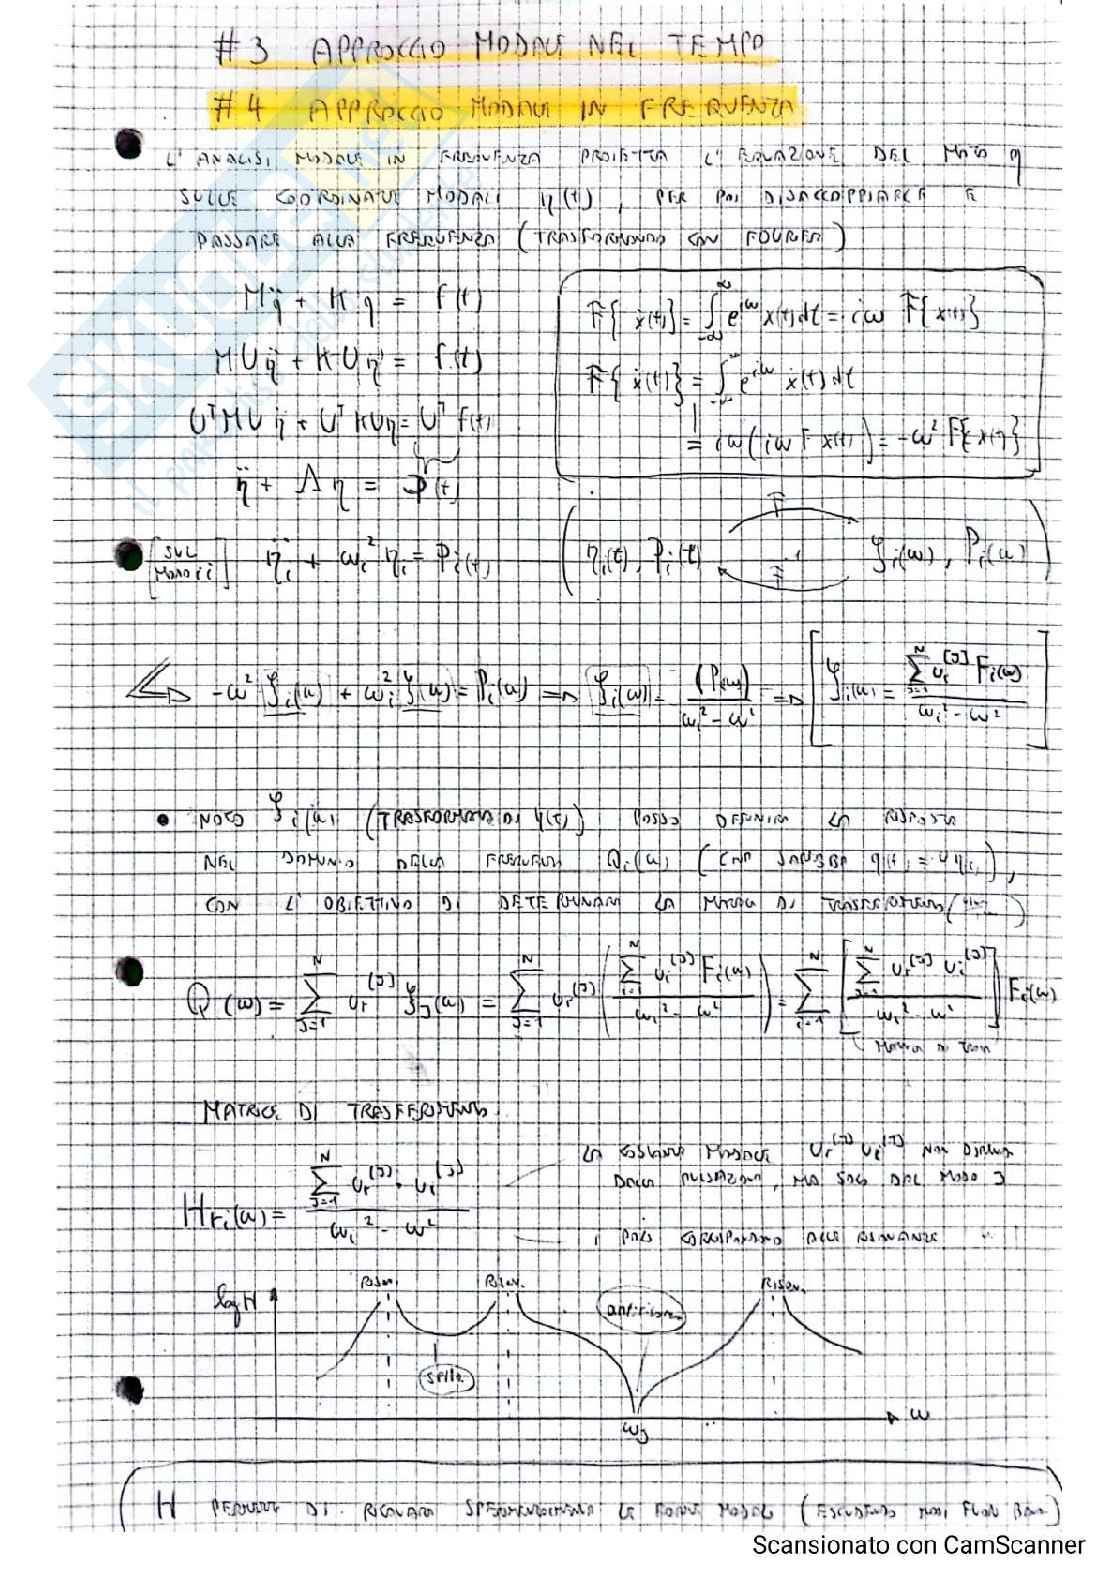 # 3 APPROCCIO MODALE NEL TEMPO
# 4 APPROCCIO MODALE IN FREQUENZA
L'ANALISI MODALE IN FREQUENZA PROIETTA L'EQUAZIONE DEL MOTO q
SULLE COORDINATE MODALI η(t), PER POI DISACCOPPIARLE E
PASSARE ALLA FREQUENZA (TRASFORMANDO CON FOURIER)
Mq̈ + Kq = f(t)
MUη̈ + KUη = f(t)
UᵀMUη̈ + UᵀKUη = Uᵀf(t)
η̈ + Λη = P(t)
F{ẋ(t)} = ∫ e^{iω} x(t) dt = iω F{x(t)}
F{ẍ(t)} = ∫ e^{iω} ẍ(t) dt
= iω(iω F x(t)) = -ω² F{x(t)}
[SUL MODO i] η̈ᵢ + ωᵢ² ηᵢ = Pᵢ(t)
(ηᵢ(t), Pᵢ(t) F F⁻¹ ξᵢ(ω), Pᵢ(ω))
⇒ -ω² ξᵢ(ω) + ωᵢ² ξᵢ(ω) = Pᵢ(ω) ⇒ ξᵢ(ω) = P(ω) / (ωᵢ² - ω²) ⇒ [ξᵢ(ω) = Σ_{J=1}^{N} uᵢ^(J) Fᵢ(ω) / (ωᵢ² - ω²)]
• NOTO ξᵢ(ω) (TRASFORMATA DI η(t)) POSSO DEFINIRE LA RISPOSTA
NEL DOMINIO DELLA FREQUENZA Qᵢ(ω) (CHE SAREBBE q(t) = Uη(t)),
CON L'OBIETTIVO DI DETERMINARE LA MATRICE DI TRASFERIMENTO
Q(ω) = Σ_{J=1}^{N} uᵣ^(J) ξ_J(ω) = Σ_{J=1}^{N} uᵣ^(J) (Σ_{i=1}^{N} uᵢ^(J) Fᵢ(ω) / (ωᵢ² - ω²)) = Σ_{i=1}^{N} [Σ_{J=1}^{N} uᵣ^(J) uᵢ^(J) / (ωᵢ² - ω²)] Fᵢ(ω)
MATRICE DI TRASF
MATRICE DI TRASFERIMENTO
Hᵣᵢ(ω) = Σ_{J=1}^{N} uᵣ^(J) · uᵢ^(J) / (ωᵢ² - ω²)
LA COSTANTE MODALE uᵣ^(J) uᵢ^(J) NON DIPENDE
DALLA PULSAZIONE, MA SOLO DAL MODO J
I POLI CORRISPONDONO ALLE RISONANZE
log H
Rison. Rison. Rison.
antirison
sella
ω
ω_J
H PERMETTE DI RICAVARE SPERIMENTALMENTE LE FORME MODALI (ESCLUDENDO MODI FUORI BANDA)
Scansionato con CamScanner